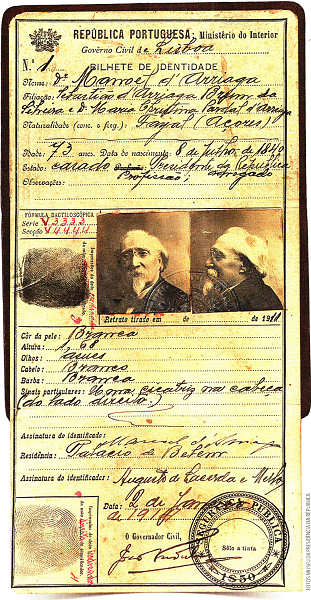 REPÚBLICA PORTUGUESA: Ministério do Interior
Govêrno Civil de Lisboa
N.º 1 BILHETE DE IDENTIDADE
Dr. Manoel d'Arriaga
Filiação: Sebastião d'Arriaga Brum da
Silveira e D. Maria Cristina Pardal d'Arriaga
Naturalidade (conc. e freg.): Fayal (Açores)
Idade: 73 anos. Data do nascimento: 8 de Julho de 1840
Estado: casado Presidente da Republica
Profissão: advogado
Observações:
FÓRMULA DACTILOSCÓPICA
Série V 3333
Secção V 4444
Retrato tirado em de de 1911
Côr da pele: Branca
Altura: 1,68
Olhos:
Cabelo: Branco
Barba: Branca
Sinais particulares: Uma cicatriz na cabeça
(do lado direito)
Assinatura do identificado:
Manuel d'Arriaga
Residência: Palacio de Belem
Assinatura do identificador: Augusto de Lacerda e Mello
Data: 2 de
de 191
O Governador Civil,
SEGURANÇA PUBLICA
Sêlo a tinta
1850